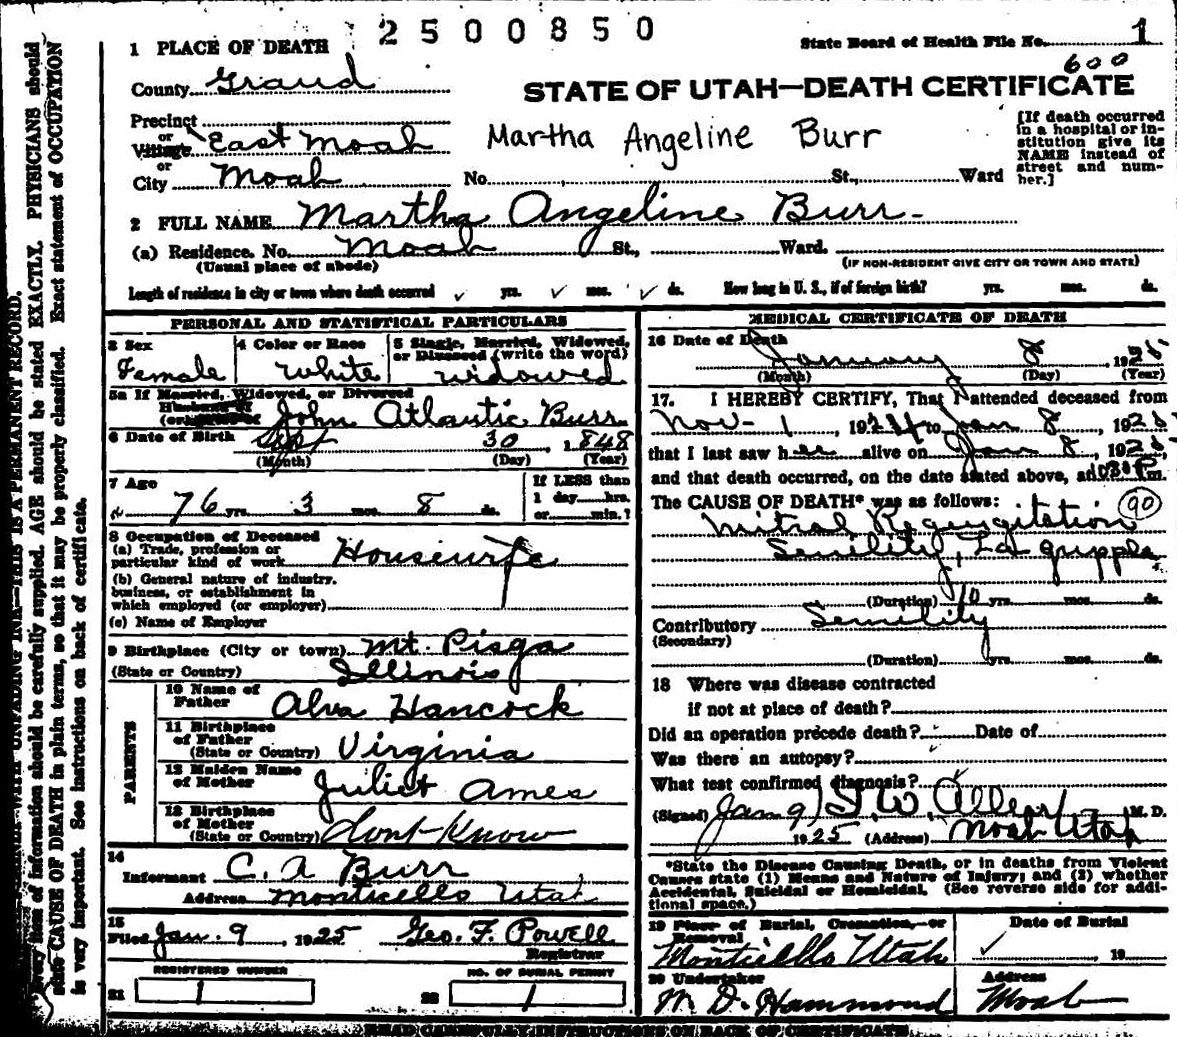 2500850
1 PLACE OF DEATH
State Board of Health File No. 1
600
County Grand
STATE OF UTAH—DEATH CERTIFICATE
Precinct
or
Village East Moab
Martha Angeline Burr
[If death occurred in a hospital or institution give its NAME instead of street and number.]
or
City Moab No. St., Ward
2 FULL NAME Martha Angeline Burr
(a) Residence. No. Moab St., Ward.
(Usual place of abode) (IF NON-RESIDENT GIVE CITY OR TOWN AND STATE)
Length of residence in city or town where death occurred yrs. mos. ds. How long in U. S., if of foreign birth? yrs. mos. ds.
PERSONAL AND STATISTICAL PARTICULARS
3 Sex Female
4 Color or Race white
5 Single, Married, Widowed, or Divorced (write the word) widowed
5a If Married, Widowed, or Divorced
Husband of
(or) Wife of John Atlantic Burr
6 Date of Birth Sept 30, 1848
(Month) (Day) (Year)
7 Age
76 yrs. 3 mos. 8 ds.
If LESS than
1 day hrs.
or min.?
8 Occupation of Deceased
(a) Trade, profession or
particular kind of work Housewife
(b) General nature of industry.
business, or establishment in
which employed (or employer)
(c) Name of Employer
9 Birthplace (City or town) Mt. Pisga
(State or Country) Illinois
PARENTS
10 Name of
Father Alva Hancock
11 Birthplace
of Father
(State or Country) Virginia
12 Maiden Name
of Mother Juliet Ames
13 Birthplace
of Mother
(State or Country) dont know
14
Informant C. A Burr
Address Monticello Utah
15
Filed Jan. 9, 1925 Geo. F. Powell
Registrar
REGISTERED NUMBER NO. OF BURIAL PERMIT
21 1 22 1
MEDICAL CERTIFICATE OF DEATH
16 Date of Death
January 8, 1925
(Month) (Day) (Year)
17. I HEREBY CERTIFY, That I attended deceased from
Nov - 1, 1924 to Jan 8, 1925
that I last saw her alive on Jan 8, 1925,
and that death occurred, on the date stated above, at m.
The CAUSE OF DEATH* was as follows: 90
Mitral Regurgitation
Senility, La grippe
(Duration) 10 yrs. mos. ds.
Contributory Senility
(Secondary)
(Duration) yrs. mos. ds.
18 Where was disease contracted
if not at place of death?
Did an operation precede death? Date of
Was there an autopsy?
What test confirmed diagnosis?
(Signed) J. W. Allen M. D.
Jan 9, 1925 (Address) Moab Utah
*State the Disease Causing Death, or in deaths from Violent
Causes state (1) Means and Nature of Injury; and (2) whether
Accidental, Suicidal or Homicidal. (See reverse side for additional space.)
19 Place of Burial, Cremation, or
Removal
Monticello Utah
Date of Burial
19
20 Undertaker
M. D. Hammond
Address
Moab
READ CAREFULLY INSTRUCTIONS ON BACK OF CERTIFICATE
UNFADING INK—THIS IS A PERMANENT RECORD.
Every item of information should be carefully supplied. AGE should be stated EXACTLY. PHYSICIANS should
state CAUSE OF DEATH in plain terms, so that it may be properly classified. Exact statement of OCCUPATION
is very important. See instructions on back of certificate.